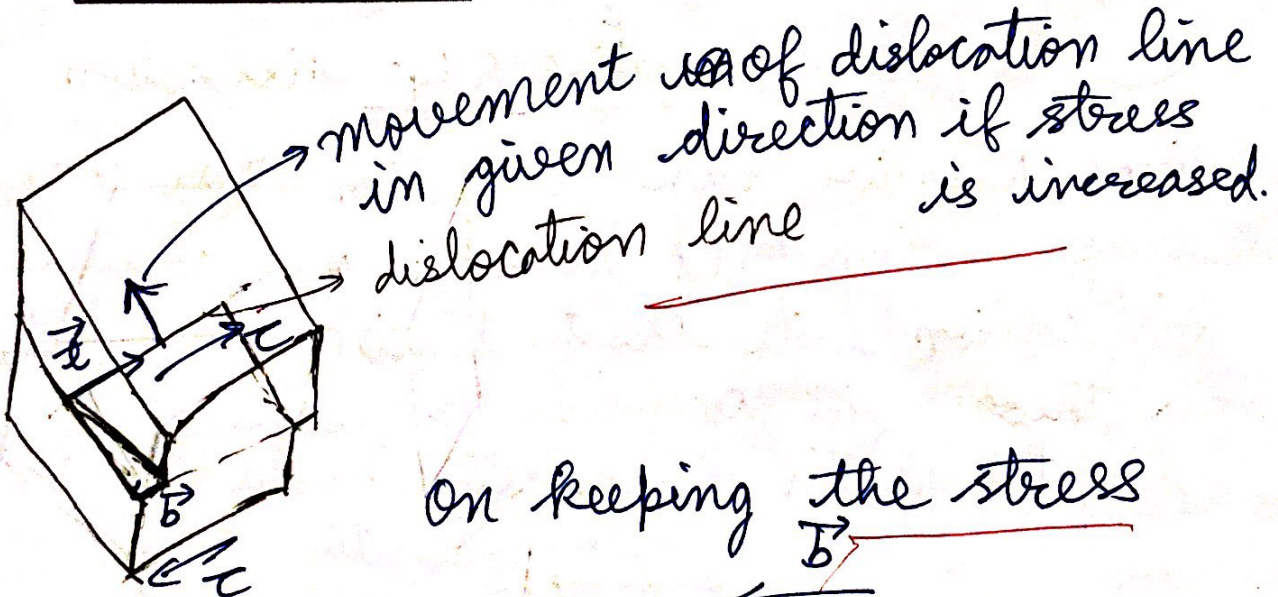 movement of dislocation line
in given direction if stress
is increased.
dislocation line
t⃗
τ
b⃗
τ
On keeping the stress
b⃗